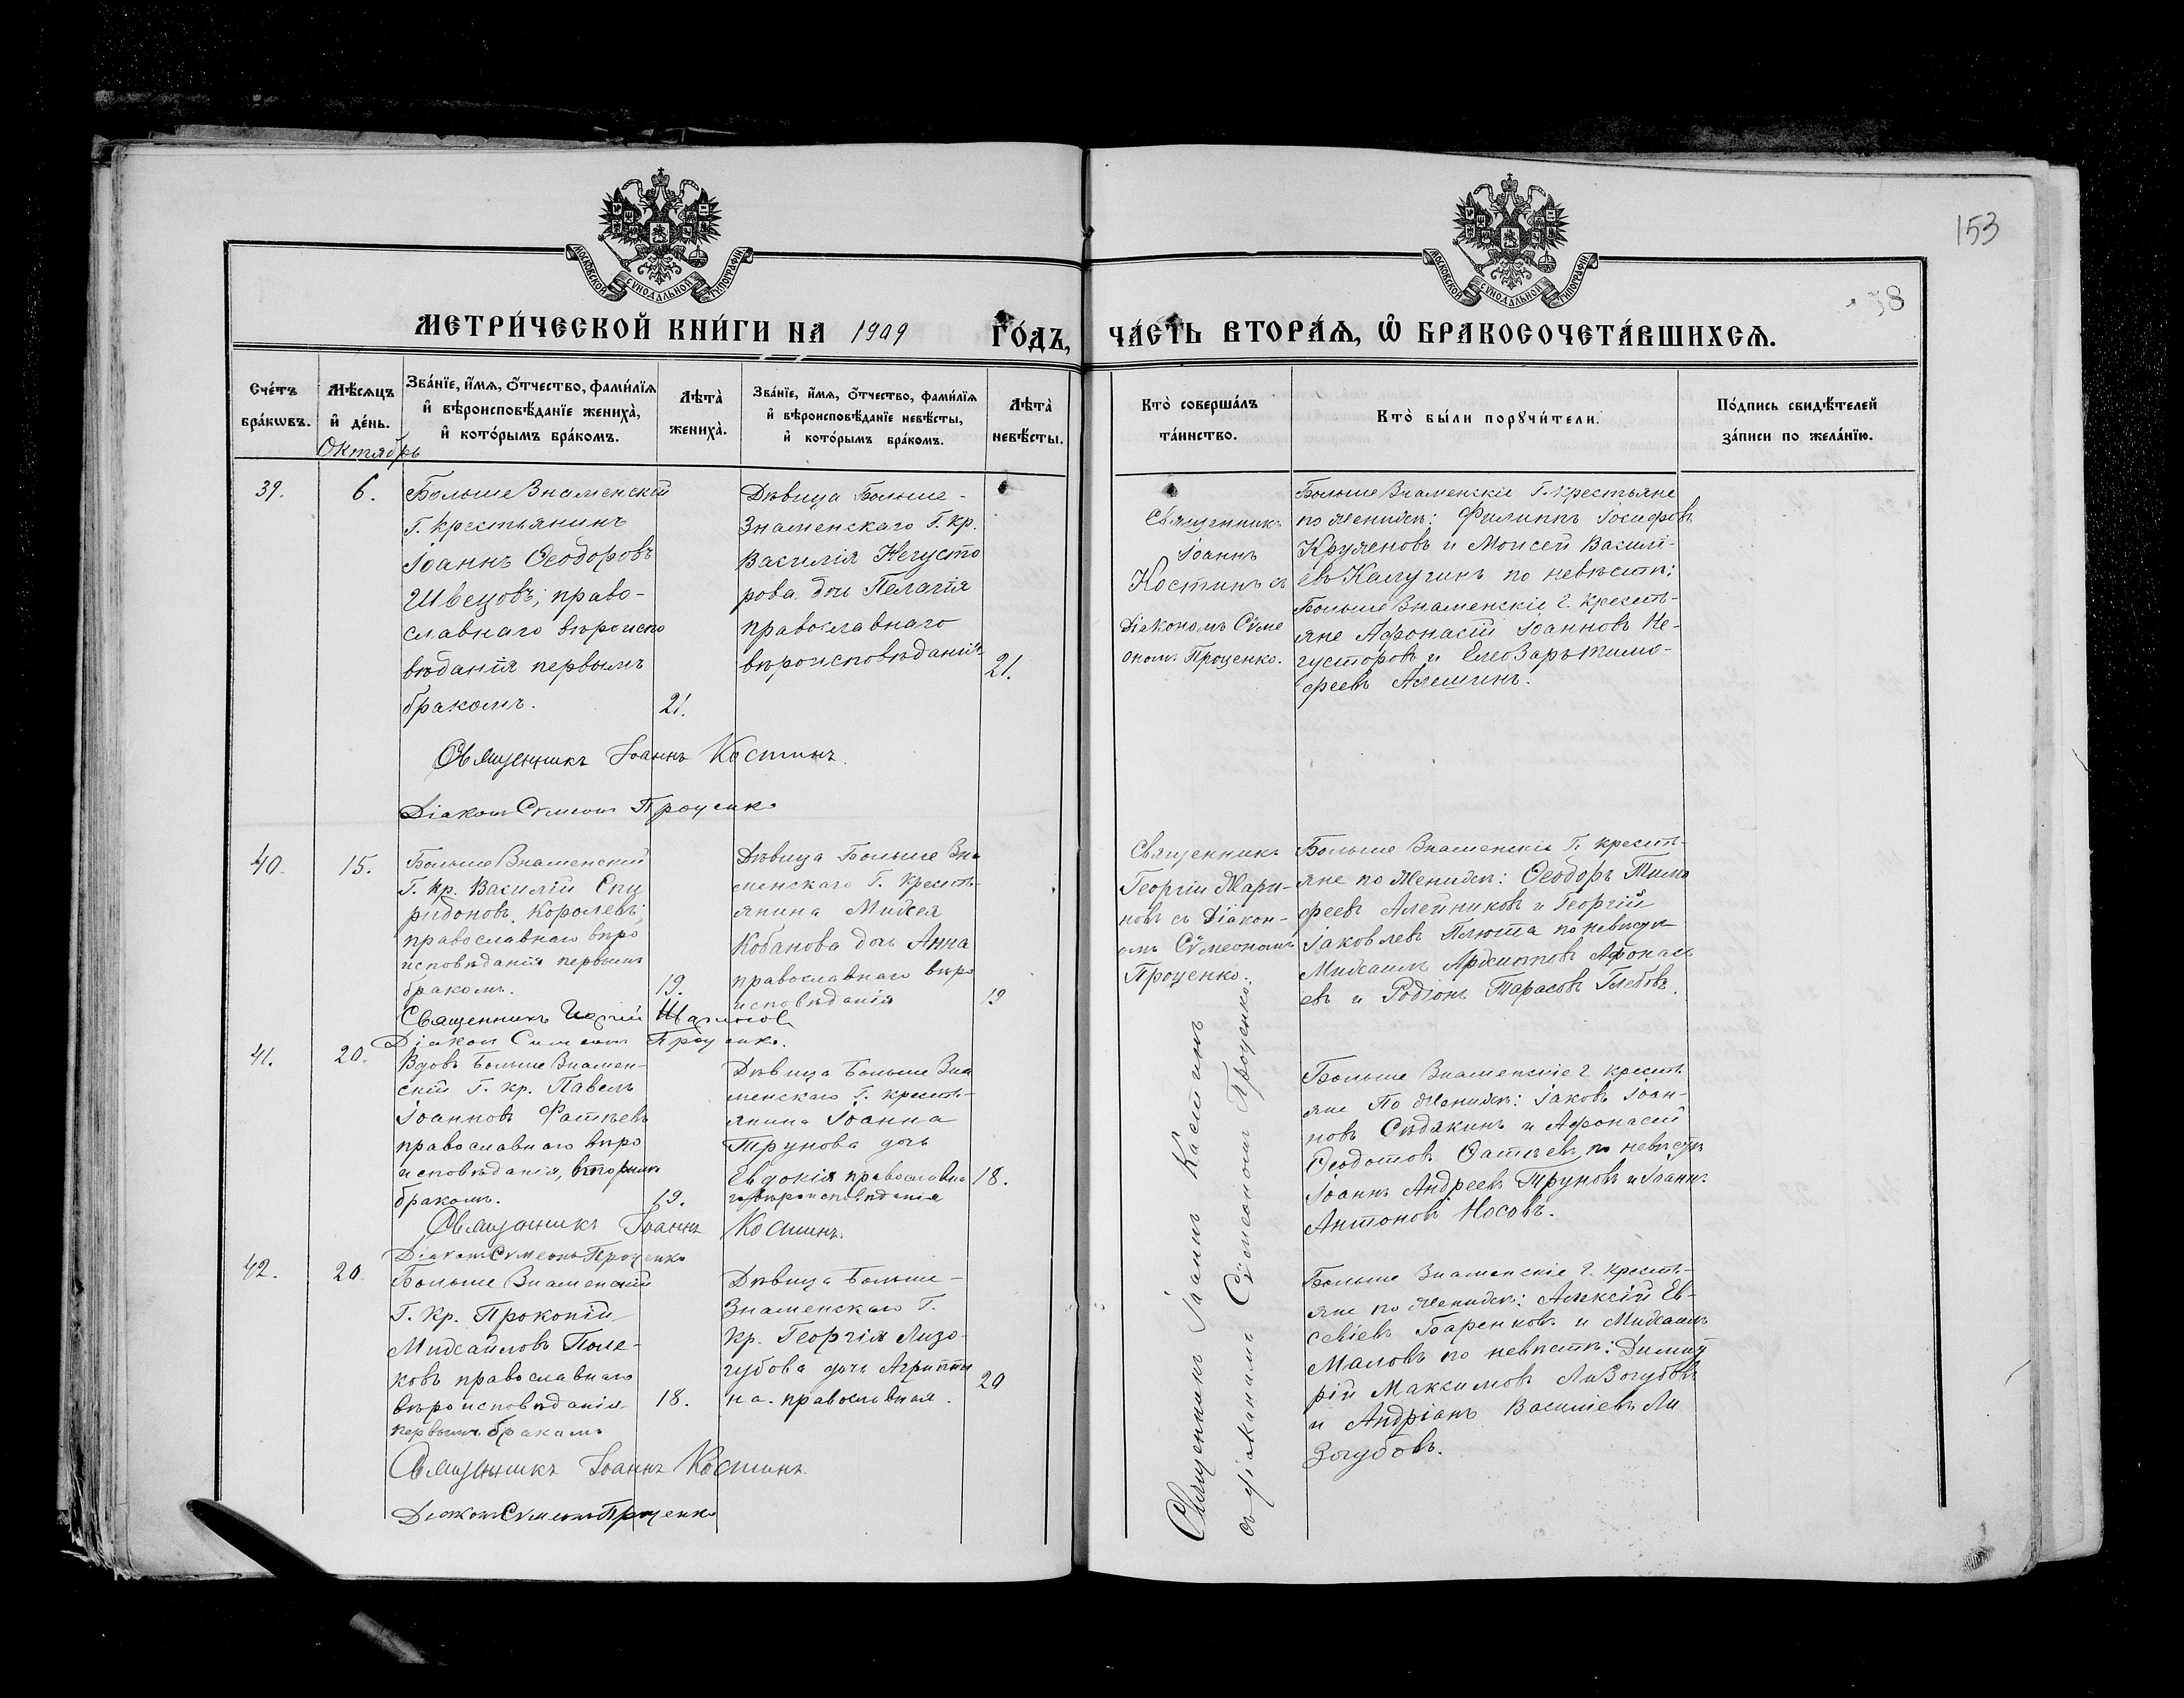 153
38
МОСКОВСКОЙ СѴНОДАЛЬНОЙ ТИПОГРАФІИ
МОСКОВСКОЙ СѴНОДАЛЬНОЙ ТИПОГРАФІИ
МЕТРИ́ЧЕСКОЙ КНИ́ГИ НА 1909 ГО́ДЪ,
ЧА́СТЬ ВТОРА́Ѧ, Ѽ БРАКОСОЧЕТА́ВШИХСѦ.
Сче́тъ
бра́кѡвъ.
Мѣ́сѧцъ
и҆ де́нь.
Октябрь
Зва́нїе, и҆́мѧ, ѻ҆́тчество, фами́лїѧ
и҆ вѣроисповѣ́данїе жениха̀,
и҆ кото́рымъ бра́комъ.
Лѣта̀
жениха̀.
Зва́нїе, и҆́мѧ, ѻ҆́тчество, фами́лїѧ
и҆ вѣроисповѣ́данїе невѣ́сты,
и҆ кото́рымъ бра́комъ.
Лѣта̀
невѣ́сты.
Кто̀ соверша́лъ
та́инство.
Кто̀ бы́ли порꙋчи́тели.
По́дпись свидѣ́телей
за́писи по жела́нїю.
39.
6.
Больше Знаменскій
Г. крестьянинъ
Іоаннъ Ѳеодоровъ
Швецовъ, право-
славнаго вѣроиспо
вѣданія первымъ
бракомъ.
21.
Дѣвица Больше-
Знаменскаго Г. кр.
Василія Негусто
рова дочь Пелагія
православнаго
вѣроисповѣданія
21.
Священникъ
Іоаннъ
Костинъ съ
Діакономъ Сѵме
ономъ Проценко.
Больше Знаменскіе Г. крестьяне
по женихѣ: Филиппъ Іосифовъ
Кружновъ и Моисей Василі-
евъ Калугинъ по невѣстѣ:
Больше Знаменскіе г. кресть-
яне Афонасій Іоанновъ Не-
густоровъ и Елеозаръ Тимо-
феевъ Алешинъ.
Священникъ Іоаннъ Костинъ.
Діаконъ Сѵмеонъ Проценко
40.
15.
Больше Знаменскій
Г. кр. Василій Спи
ридоновъ Королевъ;
православнаго вѣро
исповѣданія первымъ
бракомъ.
19.
Дѣвица Больше Зна
менскаго Г. кресть-
янина Михея
Кобанова дочь Анна
православнаго вѣро
исповѣданія
19
Священникъ
Георгій Мари-
новъ съ Діакон-
омъ Сѵмеономъ
Проценко.
Больше Знаменскіе Г. кресть-
яне по женихѣ: Ѳеодоръ Тимо
феевъ Алейниковъ и Георгій
Іаковлевъ Плюта по невѣстѣ
Михаилъ Архиповъ Афонась
евъ и Родіонъ Тарасовъ Глебовъ.
Священникъ Георгій Мариновъ
Діаконъ Симеонъ Проценко.
41.
20.
Вдовъ Больше Знамен-
скій Г. кр. Павелъ
Іоанновъ Фатѣевъ
православнаго вѣро
исповѣданія, вторымъ
бракомъ.
19.
Дѣвица Больше Зна
менскаго Г. кресть-
янина Іоанна
Трунова дочь
Евдокія православна
го вѣроисповѣданія
18.
Больше Знаменскіе г. кресть
яне По женихѣ: Іаковъ Іоан-
новъ Сѣдякинъ и Афонасій
Ѳеодотовъ Фатѣевъ, по невѣстѣ
Іоаннъ Андреевъ Труновъ и Іоаннъ
Антоновъ Носовъ.
Священникъ Іоаннъ Костинъ.
Діаконъ Сѵмеонъ Проценко
42.
20.
Больше Знаменскій
Г. Кр. Прокопій
Михайловъ Поле-
ковъ православнаго
вѣроисповѣданія
первымъ бракомъ
18.
Дѣвица Больше-
Знаменскаго Г.
Кр. Георгія Лизо-
губова дочь Агриппи
на. православная.
20
Больше Знаменскіе г. кресть-
яне по женихѣ: Алексій Ев-
севіевъ Баренковъ и Михаилъ
Маловъ по невѣстѣ: Димит
рій Максимовъ Лизогубовъ
и Андріанъ Василіевъ Ли
Зогубовъ.
Священникъ Іоаннъ Костинъ
съ діакономъ Сѵмеономъ Проценко.
Священникъ Іоаннъ Костинъ
Діаконъ Сѵмеонъ Проценко